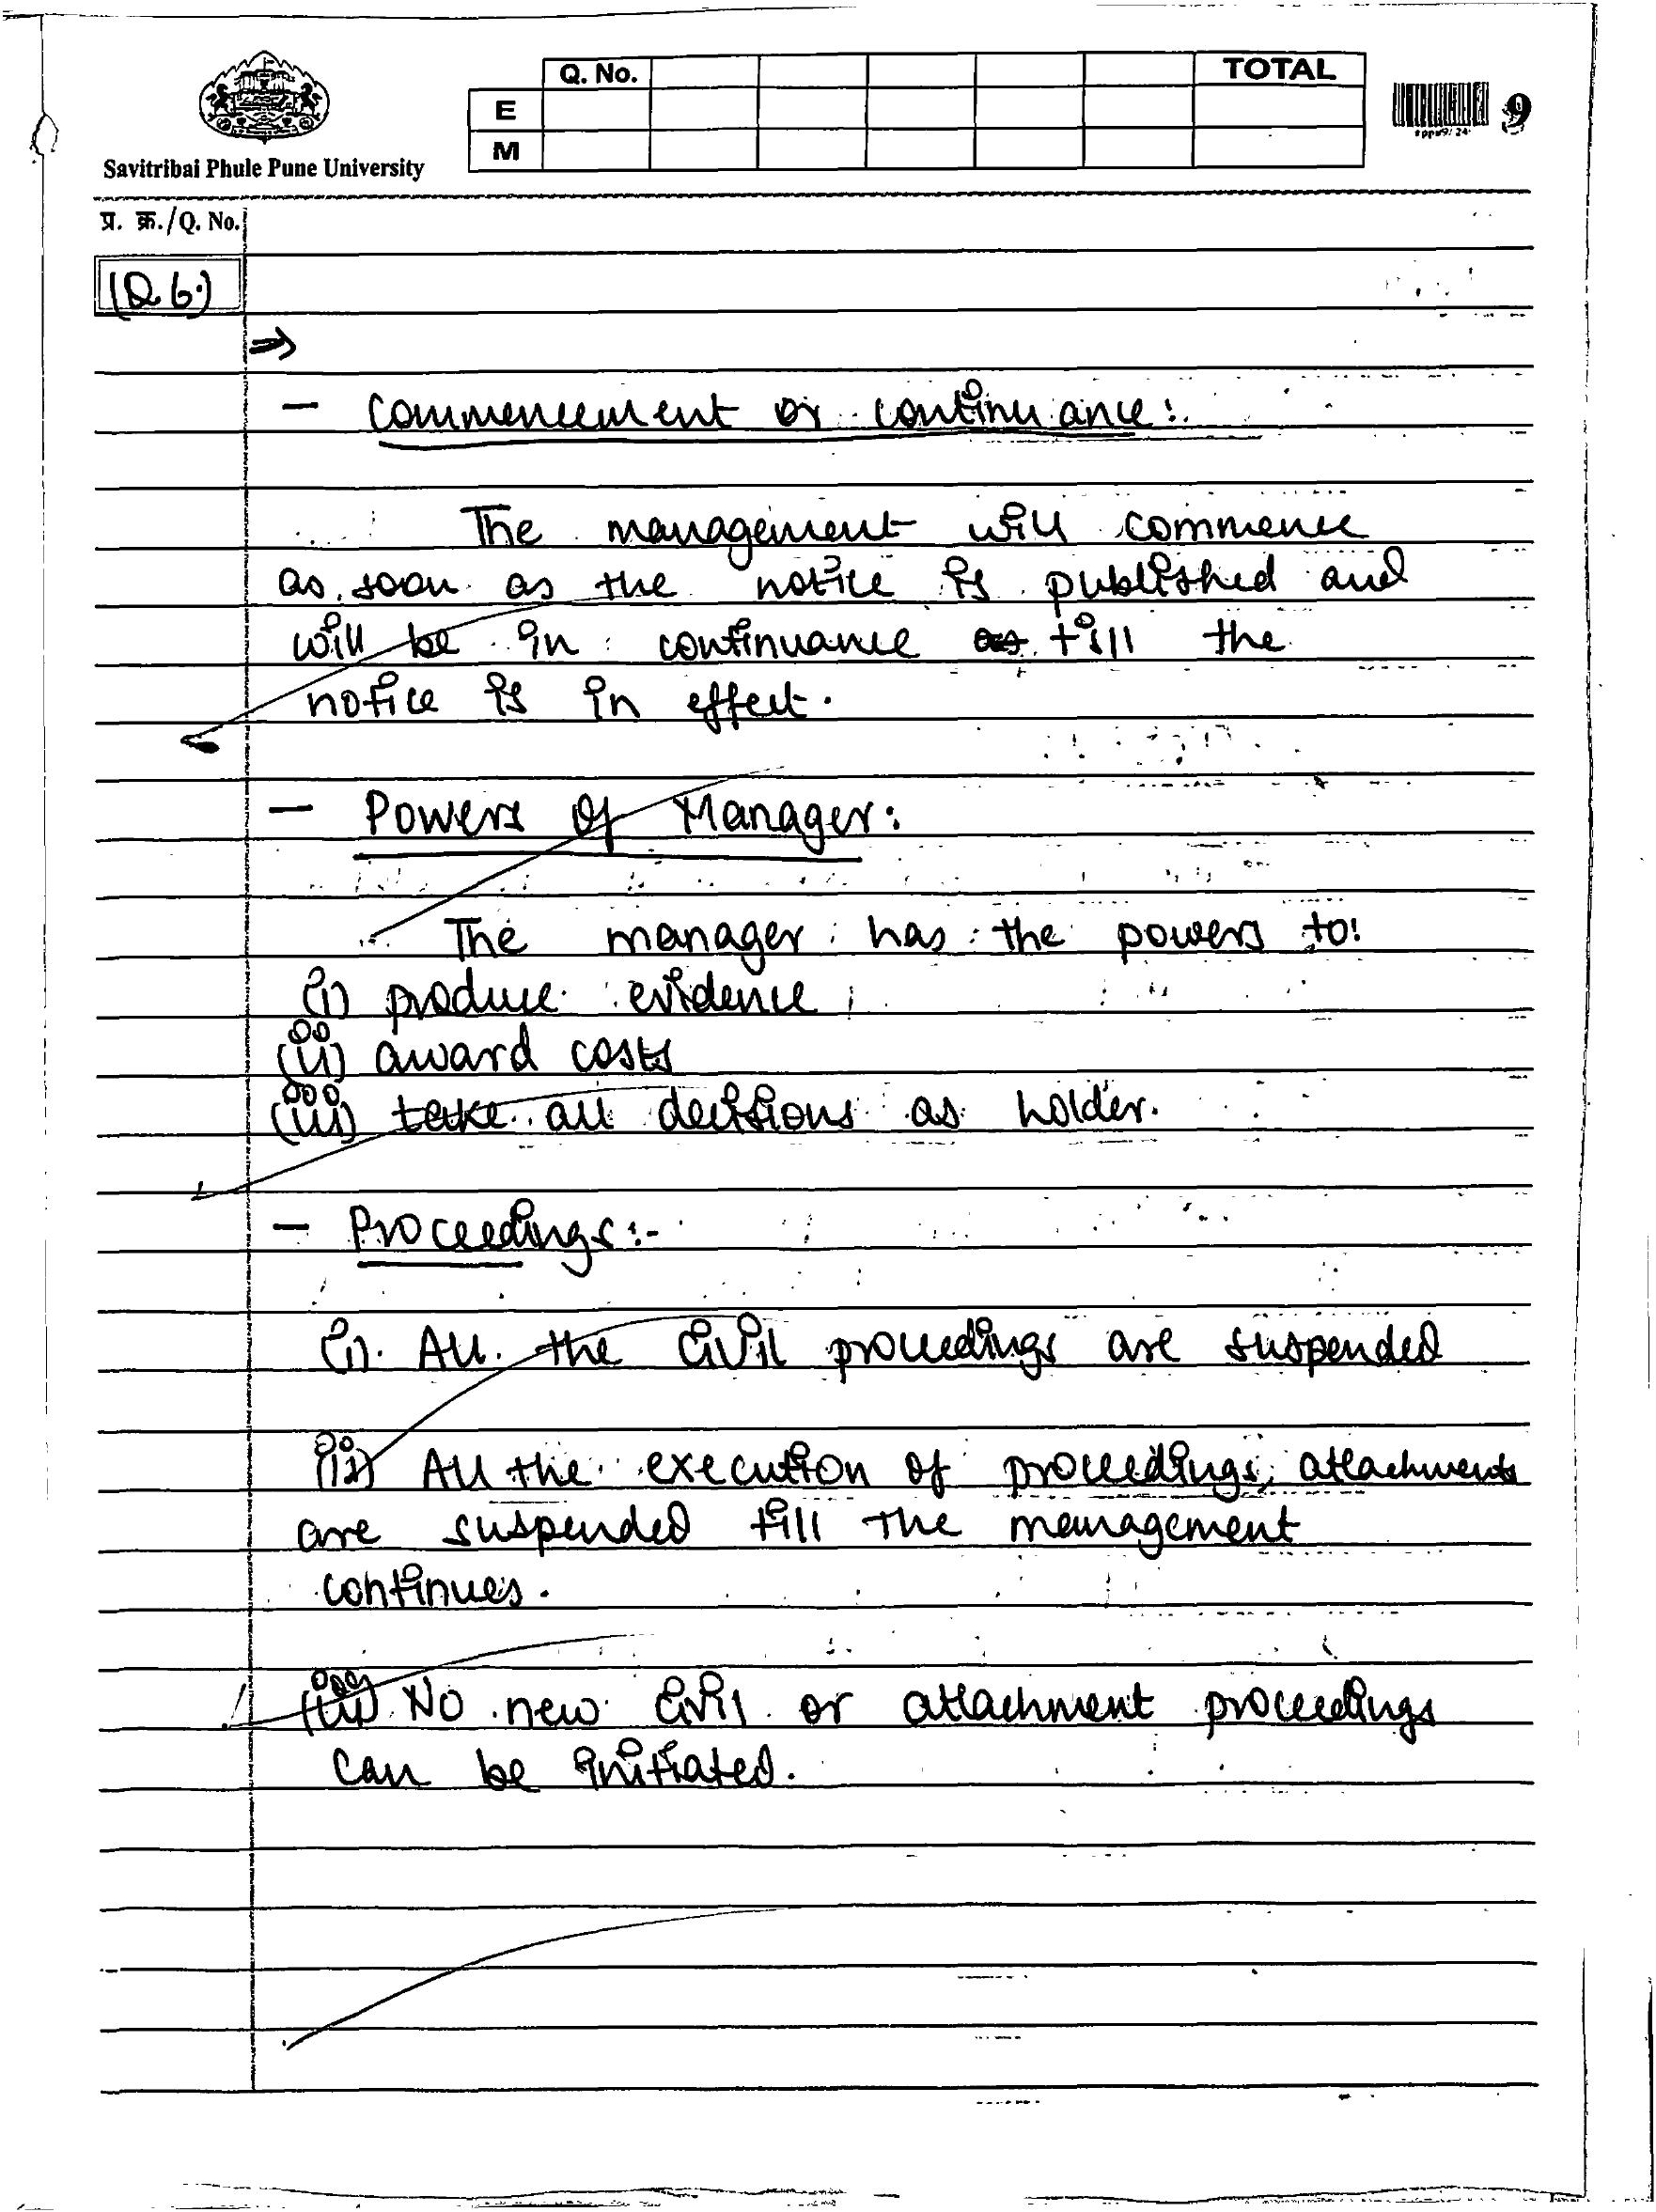 Q. No. TOTAL
E
M
9
Savitribai Phule Pune University
प्र. क्र./Q. No.
(Q 6.)
⇒
- Commencement or continuance:
The management will commence
as soon as the notice is published and
will be in continuance as till the
notice is in effect.
- Powers of Manager:
The manager has the powers to:
(i) produce evidence
(ii) award costs
(iii) take all decisions as holder.
- Proceedings:-
(i). All the civil proceedings are suspended
(ii) All the execution of proceedings, attachments
are suspended till the management
continues.
(iii) No new civil or attachment proceedings
can be initiated.